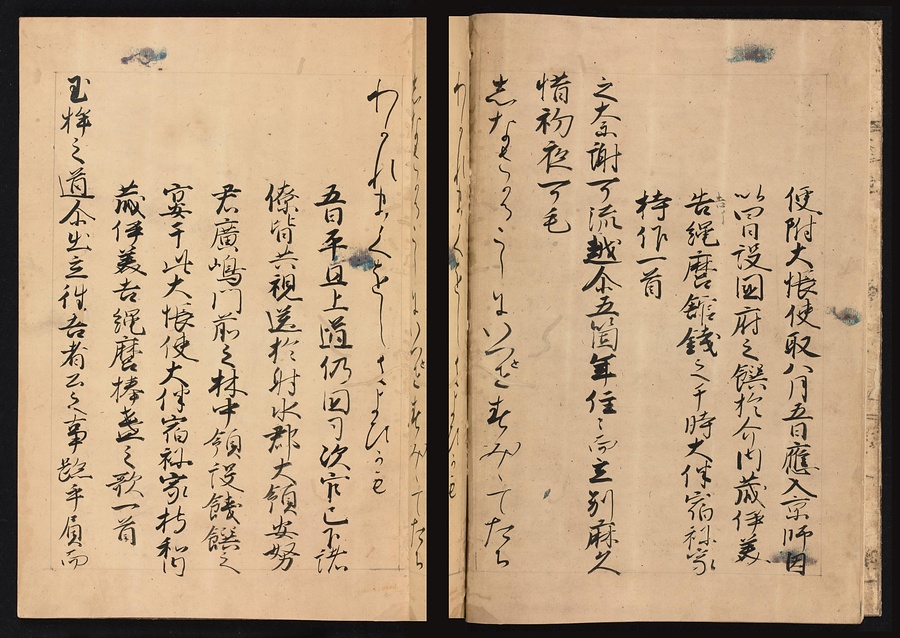 便附大帳使取八月五日應入京師因
以四日設國府之饌於介内蔵伊美
吉縄麿舘餞之于時大伴宿祢家
持作一首
之奈謝可流越尓五箇年住々而立別麻久
惜初夜可毛
しなさかるこしにいつとせすみ〳〵てたち
わかれまくをしきよひかも
五日平旦上道仍国司次官已下諸
僚皆共視送於射水郡大領安努
君廣嶋門前之林中預設餞饌之
宴于此大帳使大伴宿祢家持和内
蔵伊美吉縄麿捧盞之歌一首
玉桙之道尓出立徃吾者公之事跡乎負而